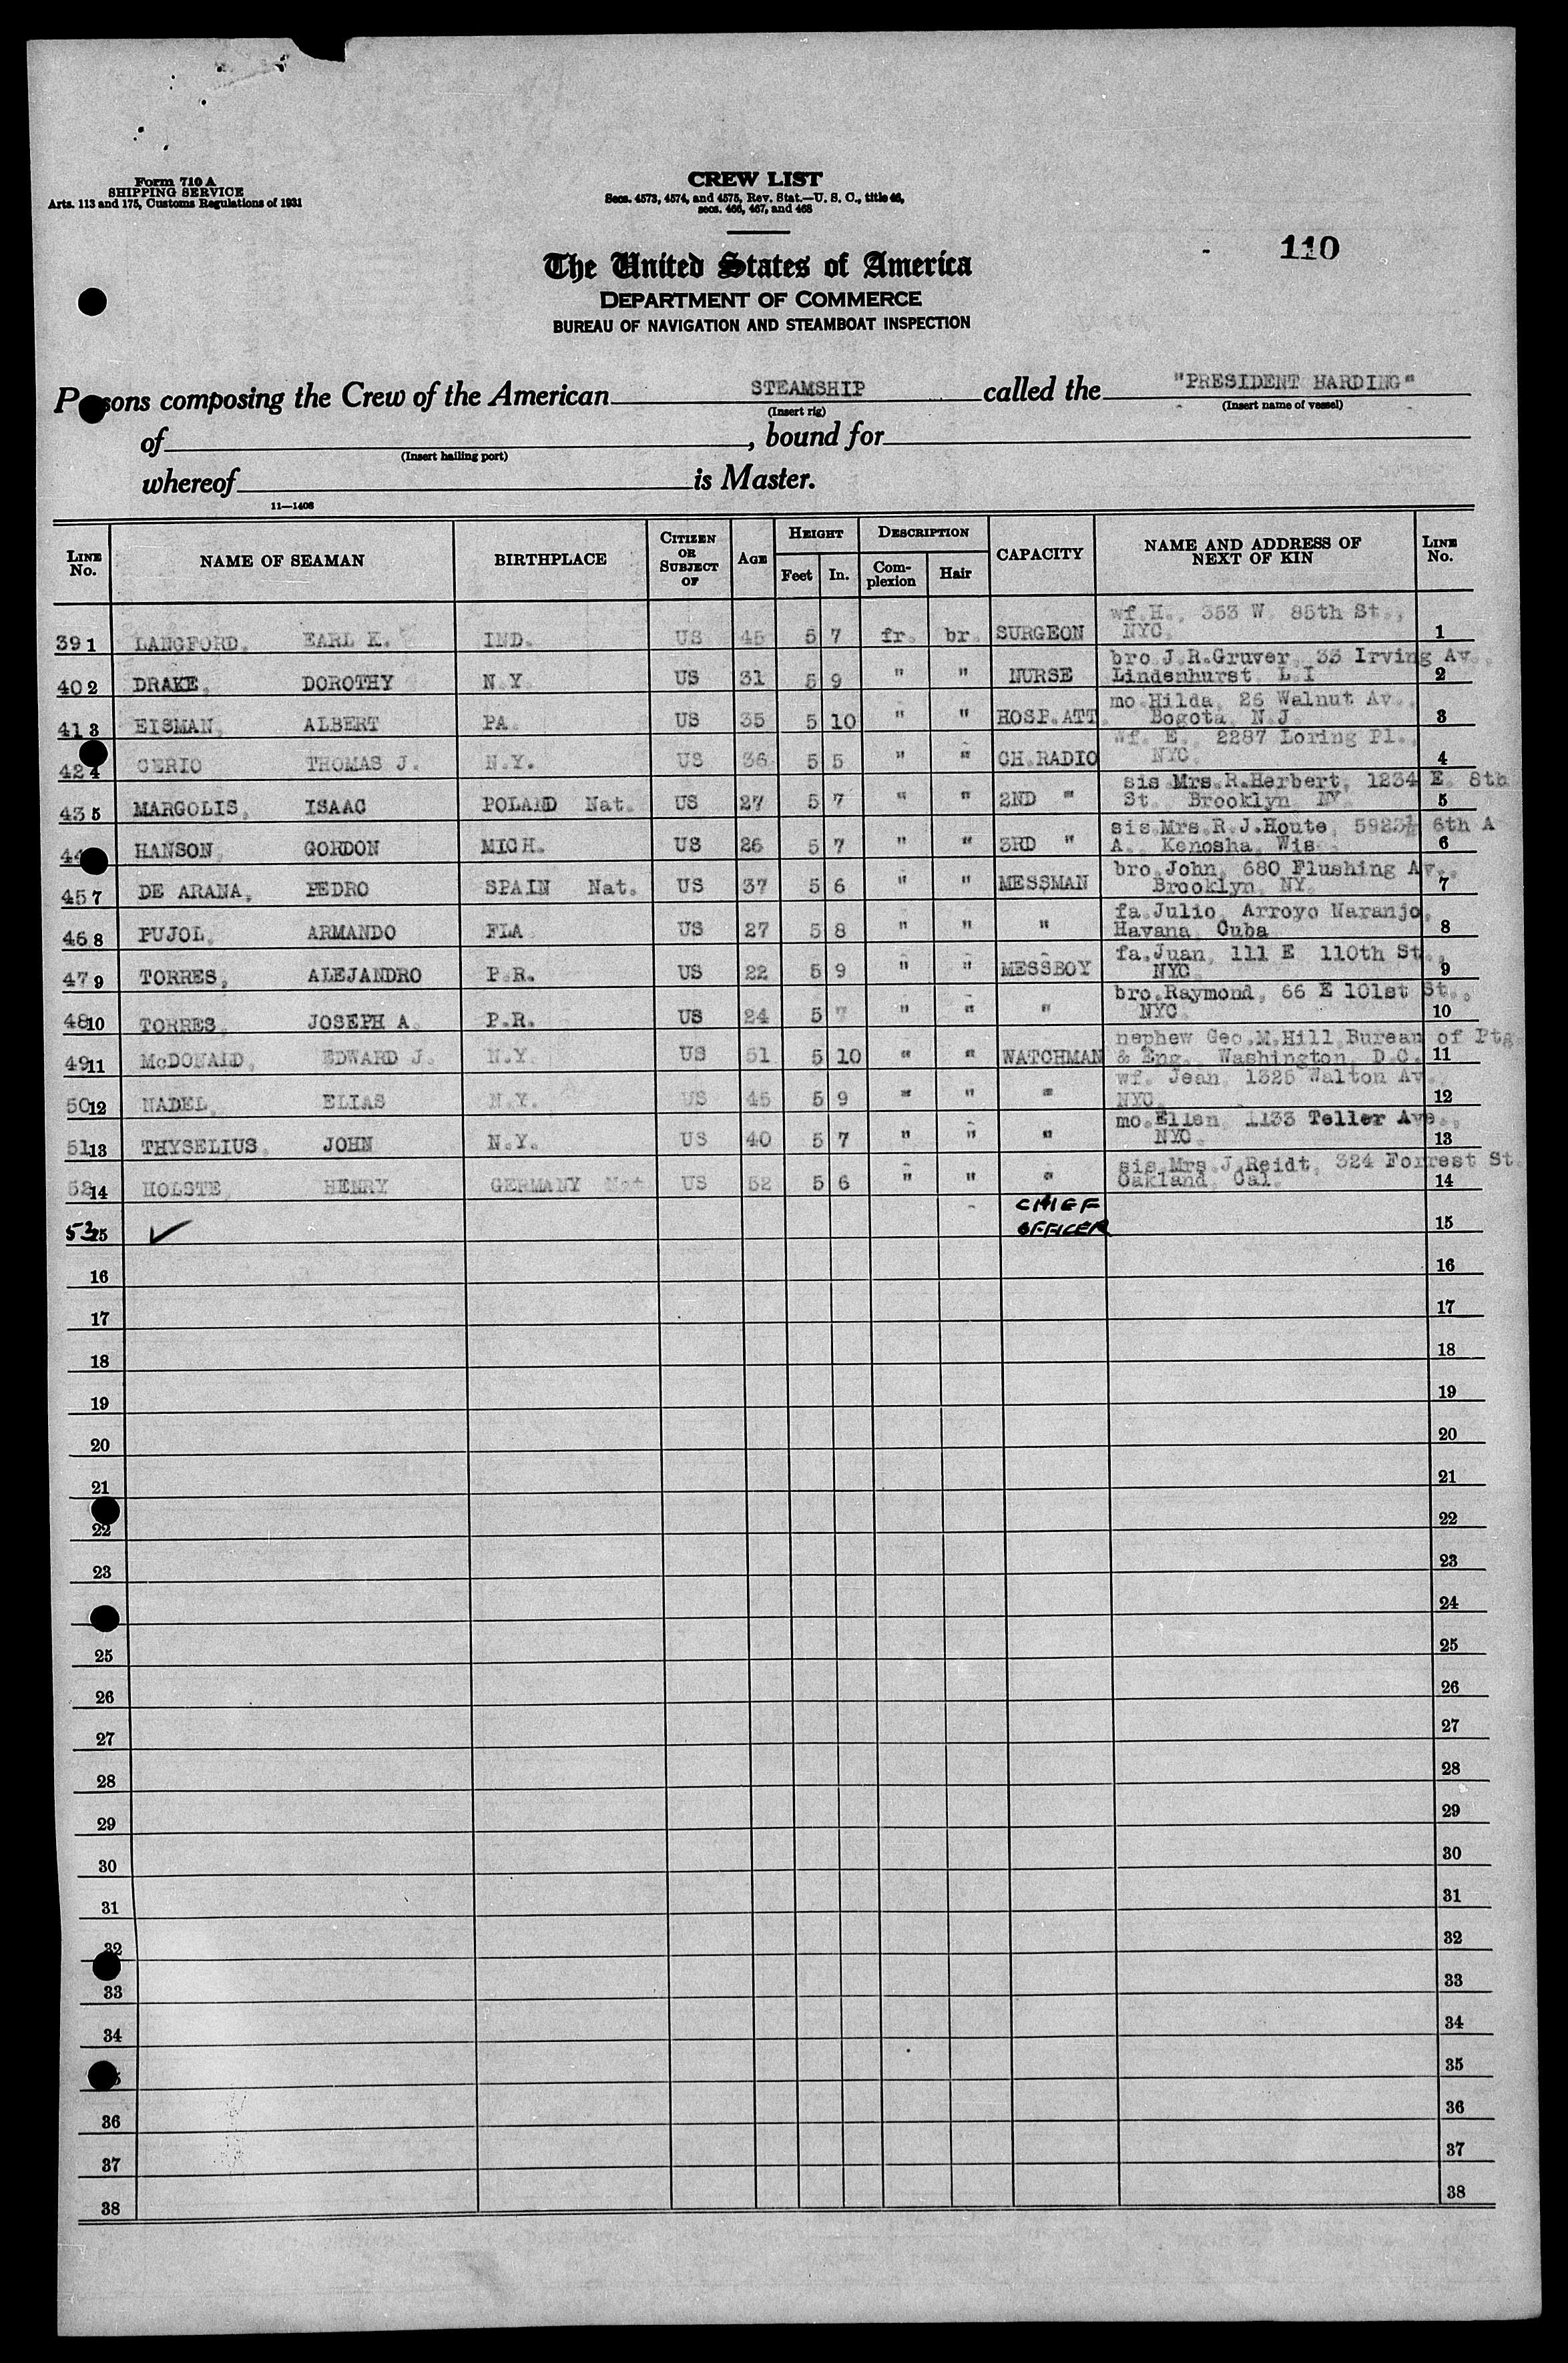 Form 710 A
SHIPPING SERVICE
Arts. 113 and 175, Customs Regulations of 1931
CREW LIST
Secs. 4573, 4574, and 4575, Rev. Stat.—U. S. C., title 46,
secs. 466, 467, and 468
110
The United States of America
DEPARTMENT OF COMMERCE
BUREAU OF NAVIGATION AND STEAMBOAT INSPECTION
Persons composing the Crew of the American STEAMSHIP called the "PRESIDENT HARDING"
(Insert rig) (Insert name of vessel)
of , bound for
(Insert hailing port)
whereof is Master.
11—1408
LINE No. NAME OF SEAMAN BIRTHPLACE CITIZEN OR SUBJECT OF AGE HEIGHT Feet In. DESCRIPTION Complexion Hair CAPACITY NAME AND ADDRESS OF NEXT OF KIN LINE No.
wf.H., 353 W. 85th St.,
39 1 LANGFORD, EARL K. IND. US 45 5 7 fr. br. SURGEON NYC. 1
bro J.R.Gruver, 33 Irving Av.,
40 2 DRAKE, DOROTHY N.Y. US 31 5 9 " " NURSE Lindenhurst, L.I 2
mo.Hilda, 26 Walnut Av.,
41 3 EISMAN, ALBERT PA. US 35 5 10 " " HOSP.ATT. Bogota, N.J 3
wf. E. 2287 Loring Pl.,
42 4 CERIO THOMAS J. N.Y. US 36 5 5 " " CH.RADIO NYC. 4
sis Mrs.R.Herbert, 1234 E. 8th
43 5 MARGOLIS, ISAAC POLAND Nat. US 27 5 7 " " 2ND " St. Brooklyn NY. 5
sis.Mrs.R.J.Houte, 5923½ 6th A
44 HANSON, GORDON MICH. US 26 5 7 " " 3RD " A., Kenosha, Wis. 6
bro.John, 680 Flushing Av.,
45 7 DE ARANA, PEDRO SPAIN Nat. US 37 5 6 " " MESSMAN Brooklyn, NY. 7
fa.Julio, Arroyo Naranjo,
46 8 PUJOL, ARMANDO FLA US 27 5 8 " " " Havana, Cuba 8
fa.Juan, 111 E 110th St.,
47 9 TORRES, ALEJANDRO P.R. US 22 5 9 " " MESSBOY NYC. 9
bro.Raymond, 66 E 101st St.,
48 10 TORRES, JOSEPH A. P.R. US 24 5 7 " " " NYC. 10
nephew Geo.M.Hill,Bureau of Ptg.
49 11 McDONALD, EDWARD J. N.Y. US 51 5 10 " " WATCHMAN & Eng. Washington, D.C. 11
wf. Jean, 1325 Walton Av.
50 12 NADEL, ELIAS N.Y. US 45 5 9 " " " NYC. 12
mo.Ellen, 1133 Teller Ave.,
51 13 THYSELIUS, JOHN N.Y. US 40 5 7 " " " NYC. 13
sis.Mrs.J.Reidt, 324 Forrest St.
52 14 HOLSTE, HENRY GERMANY Nat US 52 5 6 " " " Oakland, Cal. 14
CHIEF
53 15 ✓ OFFICER 15
16 16
17 17
18 18
19 19
20 20
21 21
22 22
23 23
24
25 25
26 26
27 27
28 28
29 29
30 30
31 31
32 32
33 33
34 34
35
36 36
37 37
38 38